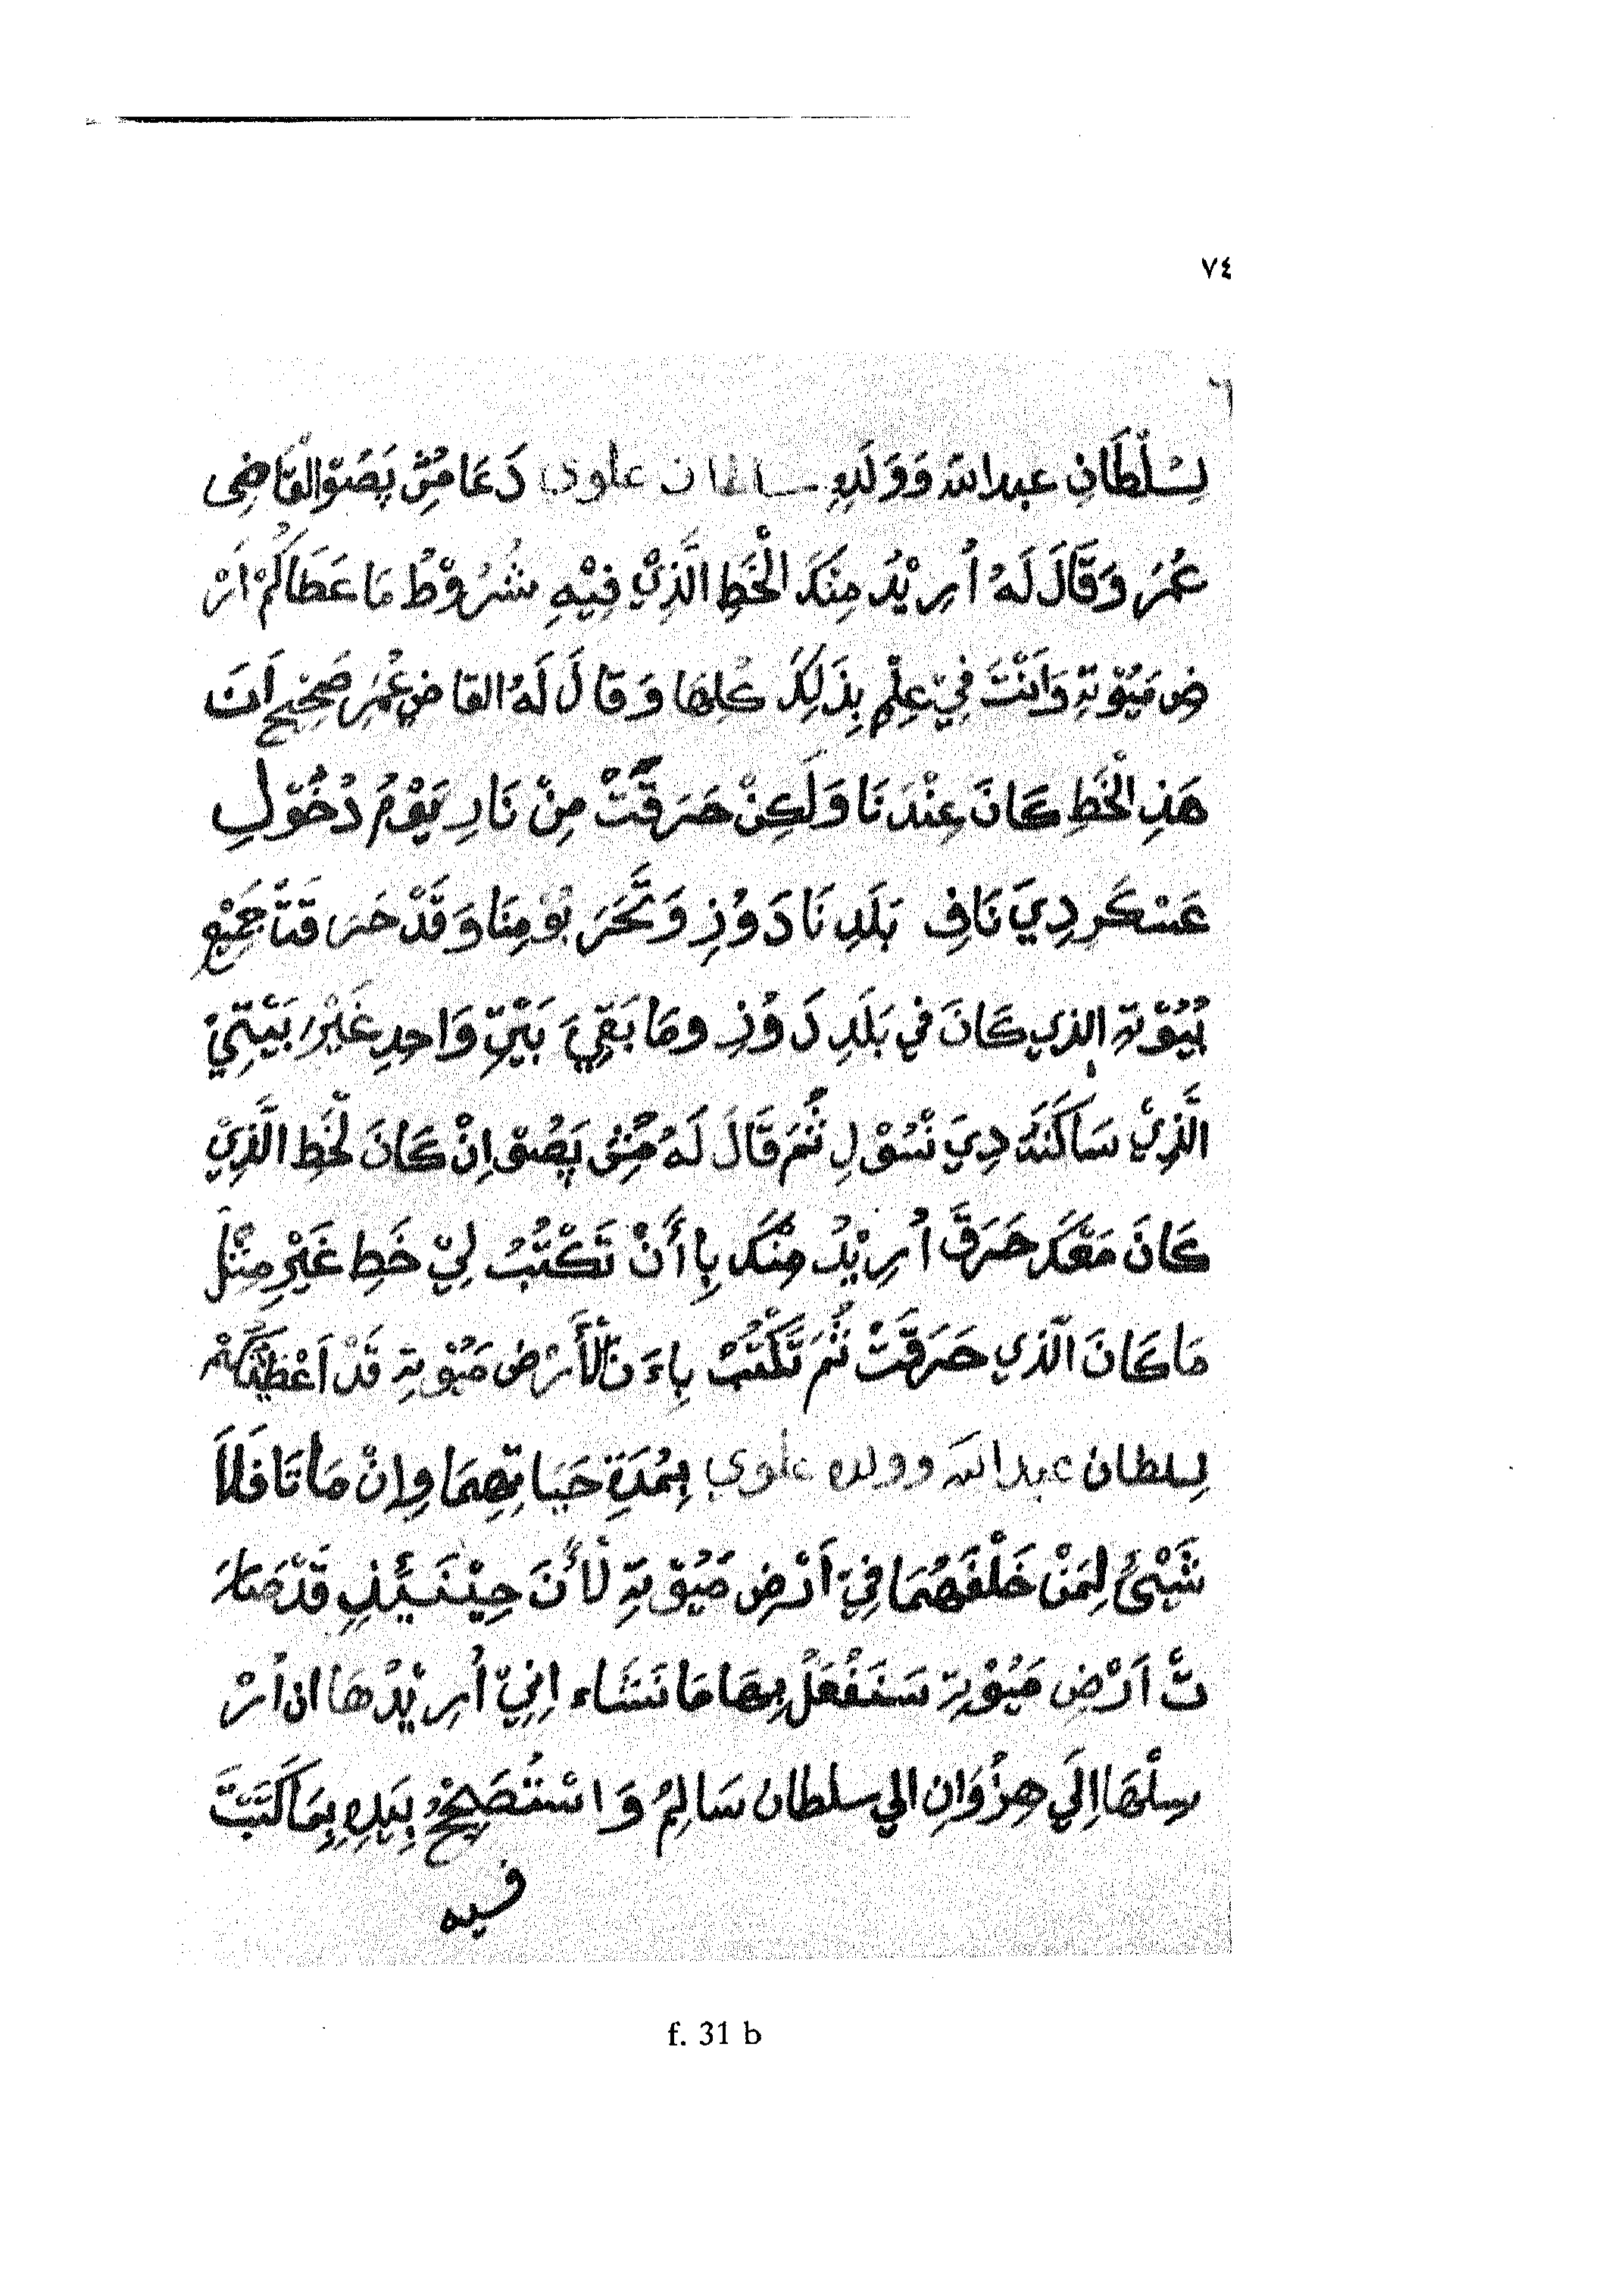 ٧٤
لِسُلْطَانِ عبدالله وَوَلَدِهِ سلطان علوي دَعَا مُسِّ پَصُوْ القَاضِى
عُمَرَ وَقَالَ لَهُ اُرِيْدُ مِنْكَ الْخَطِ الَّذِيْ فِيْهِ شُرُوْطُ مَا عَطَاكُمْ اَرْ
ضِ مَيُوْتِهِ وَاَنْتَ فِيْ عِلْمِ بِذَلِكَ كُلِهَا وَقَالَ لَهُ القاضِ عُمَرِ صَحِيْحٍ اَنَ
هَذِ الْخَطِ كَانَ عِنْدَنَا وَلَكِنْ حَرَقَتْ مِنْ نَارِ يَوْمُ دُخُوْلِ
عَسْكَر دِيَ نَافِ بَلَدِنَا دَوُذِ وَتَّحَرَبُوْ مِنَا وَقَدْ حَرَقَتْ جَمِيْعِ
بُيُوْتِهِ الذي كَانَ فِي بَلَدِ دَوُذِ وَمَا بَقِيَ بَيْتٍ وَاحِدِ غَيْرَ بَيْتِيْ
الَّذِيْ سَاكَنَهُ دِيَ نْسُوْلِ ثُمَ قَالَ لَهُ مُسِّ پَصُوْ اِنْ كَانَ لْخَطِ الَّذِيْ
كَانَ مَعَكَ حَرَقَ اُرِيْدُ مِنْكَ بِاأَنْ تَكْتُبُ لِيْ خَطِ غَيْرِ مِثْلُ
مَا كَانَ الَّذي حَرَقَتْ ثُمَ تَّكْتُبْ بِاءَنَ لْأَرْضِ مَيُوْتِهِ قَدْ اَعْطَيْتُكُمْ
لسلطان عبدالله وولده علوي بِمُدَةِ حَيَاتِهِمَا وِاِنْ مَاتَا فَلَا
شَيْئُ لِمَنْ خَلْفَهُمَا فِيْ اَرْضِ مَيُوْتِهِ لأَنَ حِيْنَئِذِ قَدْ صَارَ
تْ اَرْضِ مَيُوْتِهِ سَنَفْعَلُ بِهَا مَا نَشَاء اِنِيْ اُرِيْدُهَا ان اُرْ
سِلْهَا اِلَي هِزُوَانِ الي سلطان سَالِمُ وَاسْتُصَحِحُ بِيَدِهِ بِمَا كَتَبْتَ
فيه
f. 31 b